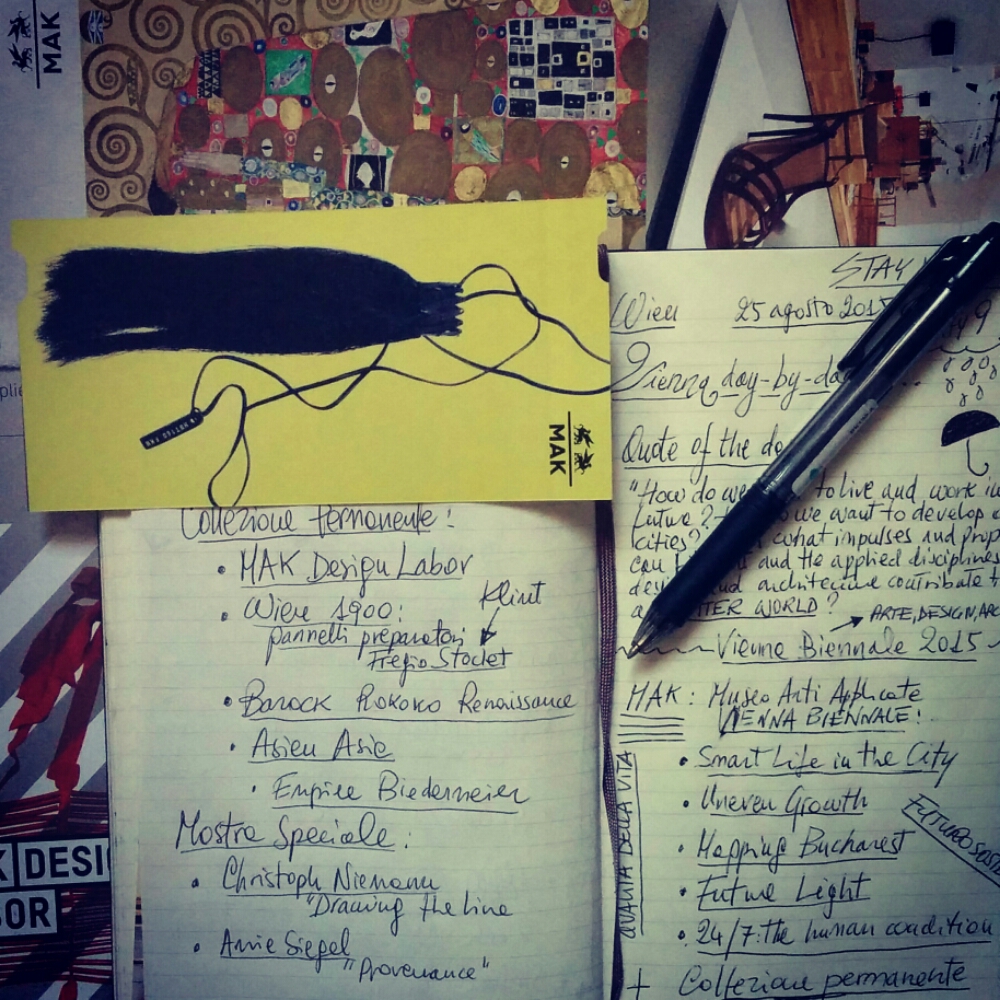 MAK
MAK
Collezione Permanente:
MAK Design Labor
Wien 1900:
Klimt
pannelli preparatori
Fregio Stoclet
Barock Rokoko Renaissance
Asien Asie
Empire Biedermeier
Mostra Speciale:
Christoph Niemann
"Drawing the line
Amie Siegel
"Provenance"
DESI
SOR
STAY
Wien 25 agosto 2015
Vienna day-by-da
Quote of the da
"How do we to live and work in
future? we want to develop
cities? what impulses and prop
can and the applied disciplines
and architecture contribute t
a TTER WORLD?
ARTE, DESIGN, ARC
Vienna Biennale 2015
MAK: Museo Arti Applicate
VIENNA BIENNALE:
Smart Life in the City
Uneven Growth
Mapping Bucharest
Future Light
24/7: the human condition
+ Collezione permanente
QUALITÀ DELLA VITA
FUTURO SOS